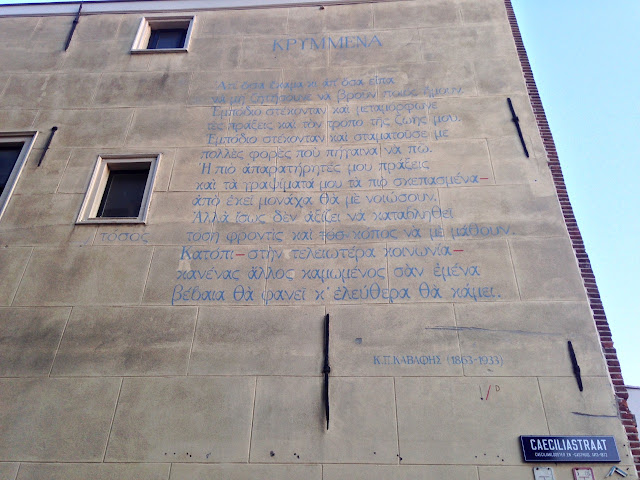 ΚΡΥΜΜΕΝΑ
Απ' ὅσα ἔκαμα κι ἀπ' ὅσα εἶπα
νὰ μὴ ζητήσουνε νὰ βροῦν ποιὸς ἤμουν.
Ἐμπόδιο στέκονταν καὶ μεταμόρφωνε
τὲς πράξεις καὶ τὸν τρόπο τῆς ζωῆς μου.
Ἐμπόδιο στέκονταν καὶ σταματοῦσε με
πολλὲς φορὲς ποὺ πήγαινα νὰ πῶ.
Ἡ πιὸ ἀπαρατήρητές μου πράξεις
καὶ τὰ γραψίματά μου τὰ πιὸ σκεπασμένα—
ἀπὸ ἐκεῖ μονάχα θὰ μὲ νοιώσουν.
Ἀλλὰ ἴσως δὲν ἀξίζει νὰ καταβληθεῖ
τόσος τόση φροντὶς καὶ τοσ- κόπος νὰ μὲ μάθουν.
Κατόπι—στὴν τελειωτέρα κοινωνία—
κανένας ἄλλος καμωμένος σὰν ἐμένα
βέβαια θὰ φανεῖ κ' ἐλεύθερα θὰ κάμει..
Κ.Π. ΚΑΒΑΦΗΣ (1863-1933)
CAECILIASTRAAT